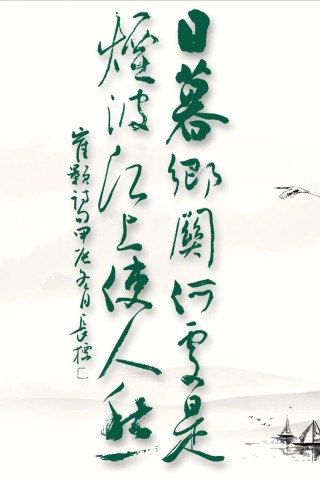 日暮鄉關何處是
煙波江上使人愁
崔顥詩句甲辰冬月長標